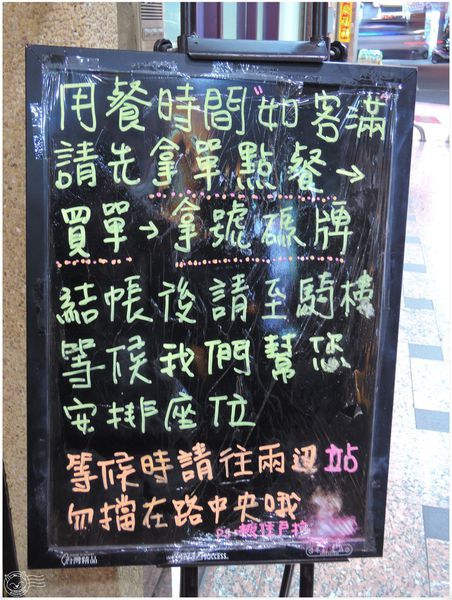 用餐時間"如客滿
請先拿單點餐→
買單→拿號碼牌
結帳後請至騎樓
等候我們幫您
安排座位
等候時請往兩边站
勿擋在路中央哦
台灣精品